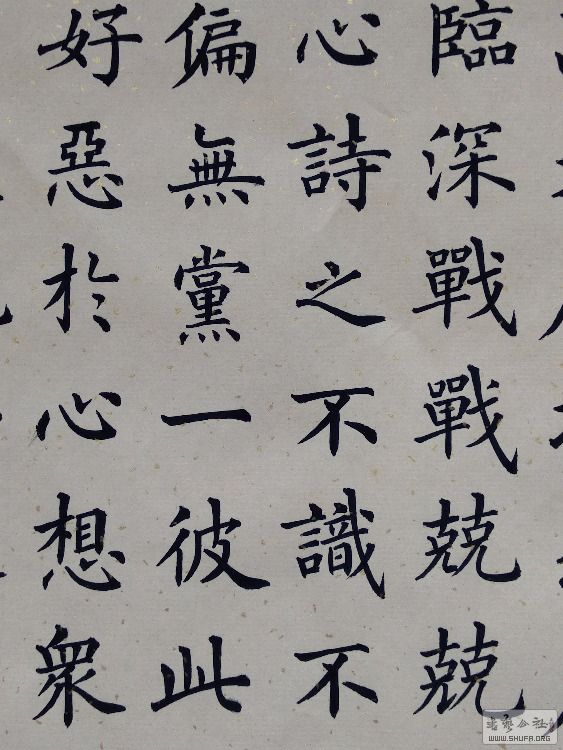 臨深戰戰兢兢
心詩之不識不
偏無黨一彼此
好惡於心想衆
WWW.SHUFA.ORG